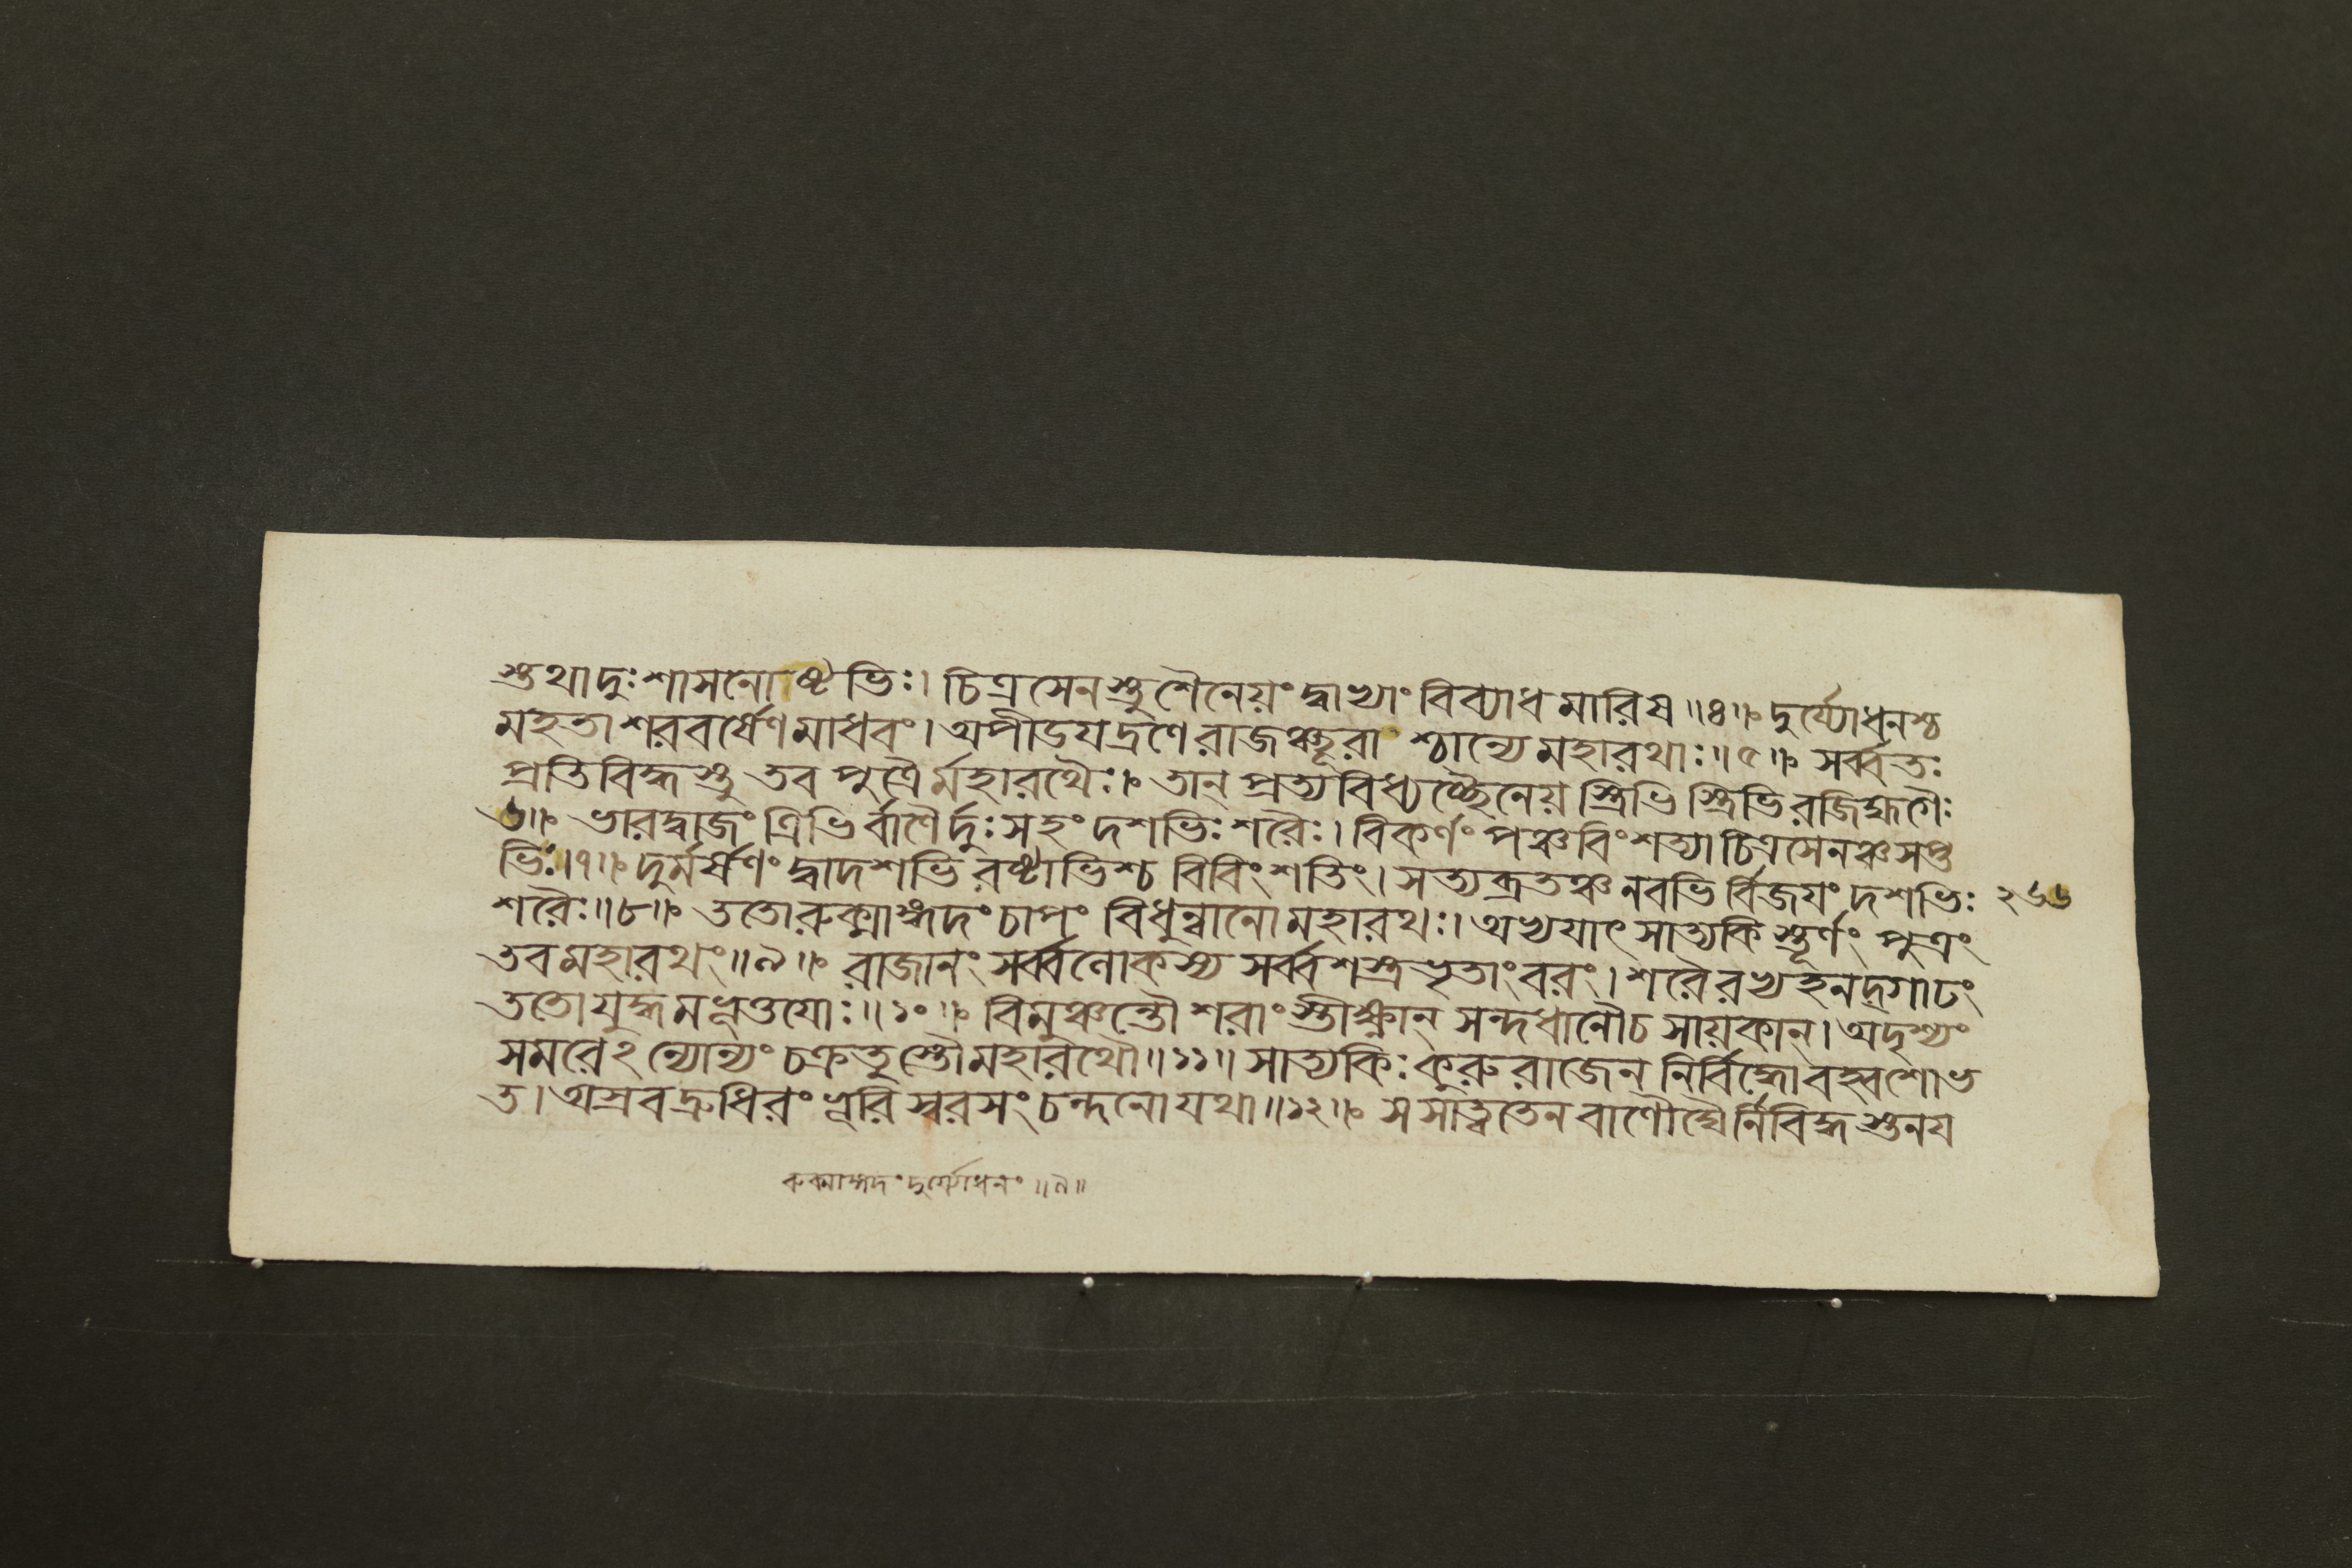 স্তথাদুঃশাসনোষ্টভিঃ। চিত্রসেনস্তু শৈনেয়ং দ্বাভ্যাং বিব্যাধ মারিষ॥৪॥ দুর্য্যোধনশ্চ
মহতা শরবর্ষেণ মাধবং। অপীডযদ্রণে রাজঞ্ছূরাশ্চান্যে মহারথাঃ॥৫॥ সর্ব্বতঃ
প্রতিবিদ্ধস্তু তব পুত্রৈর্মহারথৈঃ। তান্ প্রত্যবিধ্যচ্ছৈনেয়স্ত্রিভিস্ত্রিভিরজিহ্মগৈঃ
৬॥ ভারদ্বাজং ত্রিভির্বাণৈর্দুঃসহং দশভিঃ শরৈঃ। বিকর্ণং পঞ্চবিংশত্যা চিত্রসেনঞ্চ সপ্ত
ভিঃ।৭॥ দুর্মর্ষণং দ্বাদশভিরষ্টাভিশ্চ বিবিংশতিং। সত্যব্রতঞ্চ নবভির্বিজযং দশভিঃ ২৬৬
শরৈঃ॥৮॥ ততো রুক্মাঙ্গদং চাপং বিধুন্বানো মহারথঃ। অভ্যযাৎ সাত্যকিস্তূর্ণং পুত্রং
তব মহারথং॥৯॥ রাজানং সর্ব্বলোকস্য সর্ব্বশস্ত্রভৃতাং বরং। শরৈরভ্যহনদ্গাঢং
ততো যুদ্ধমভূত্তযোঃ॥১০॥ বিমুঞ্চন্তৌ শরাংস্তীক্ষ্ণান্ সন্দধানৌ চ সায়কান্। অদৃশ্যং
সমরেঽন্যোন্যং চক্রতুস্তৌ মহারথৌ॥১১॥ সাত্যকিঃ কুরুরাজেন নির্বিদ্ধো বহ্বশোভ
ত। অস্রবদ্রুধিরং ভূরি স্বরসং চন্দনো যথা॥১২॥ স সাত্বতেন বাণৌঘৈর্নির্বিদ্ধস্তনয
রুক্মাঙ্গদং দুর্য্যোধনং॥৯॥